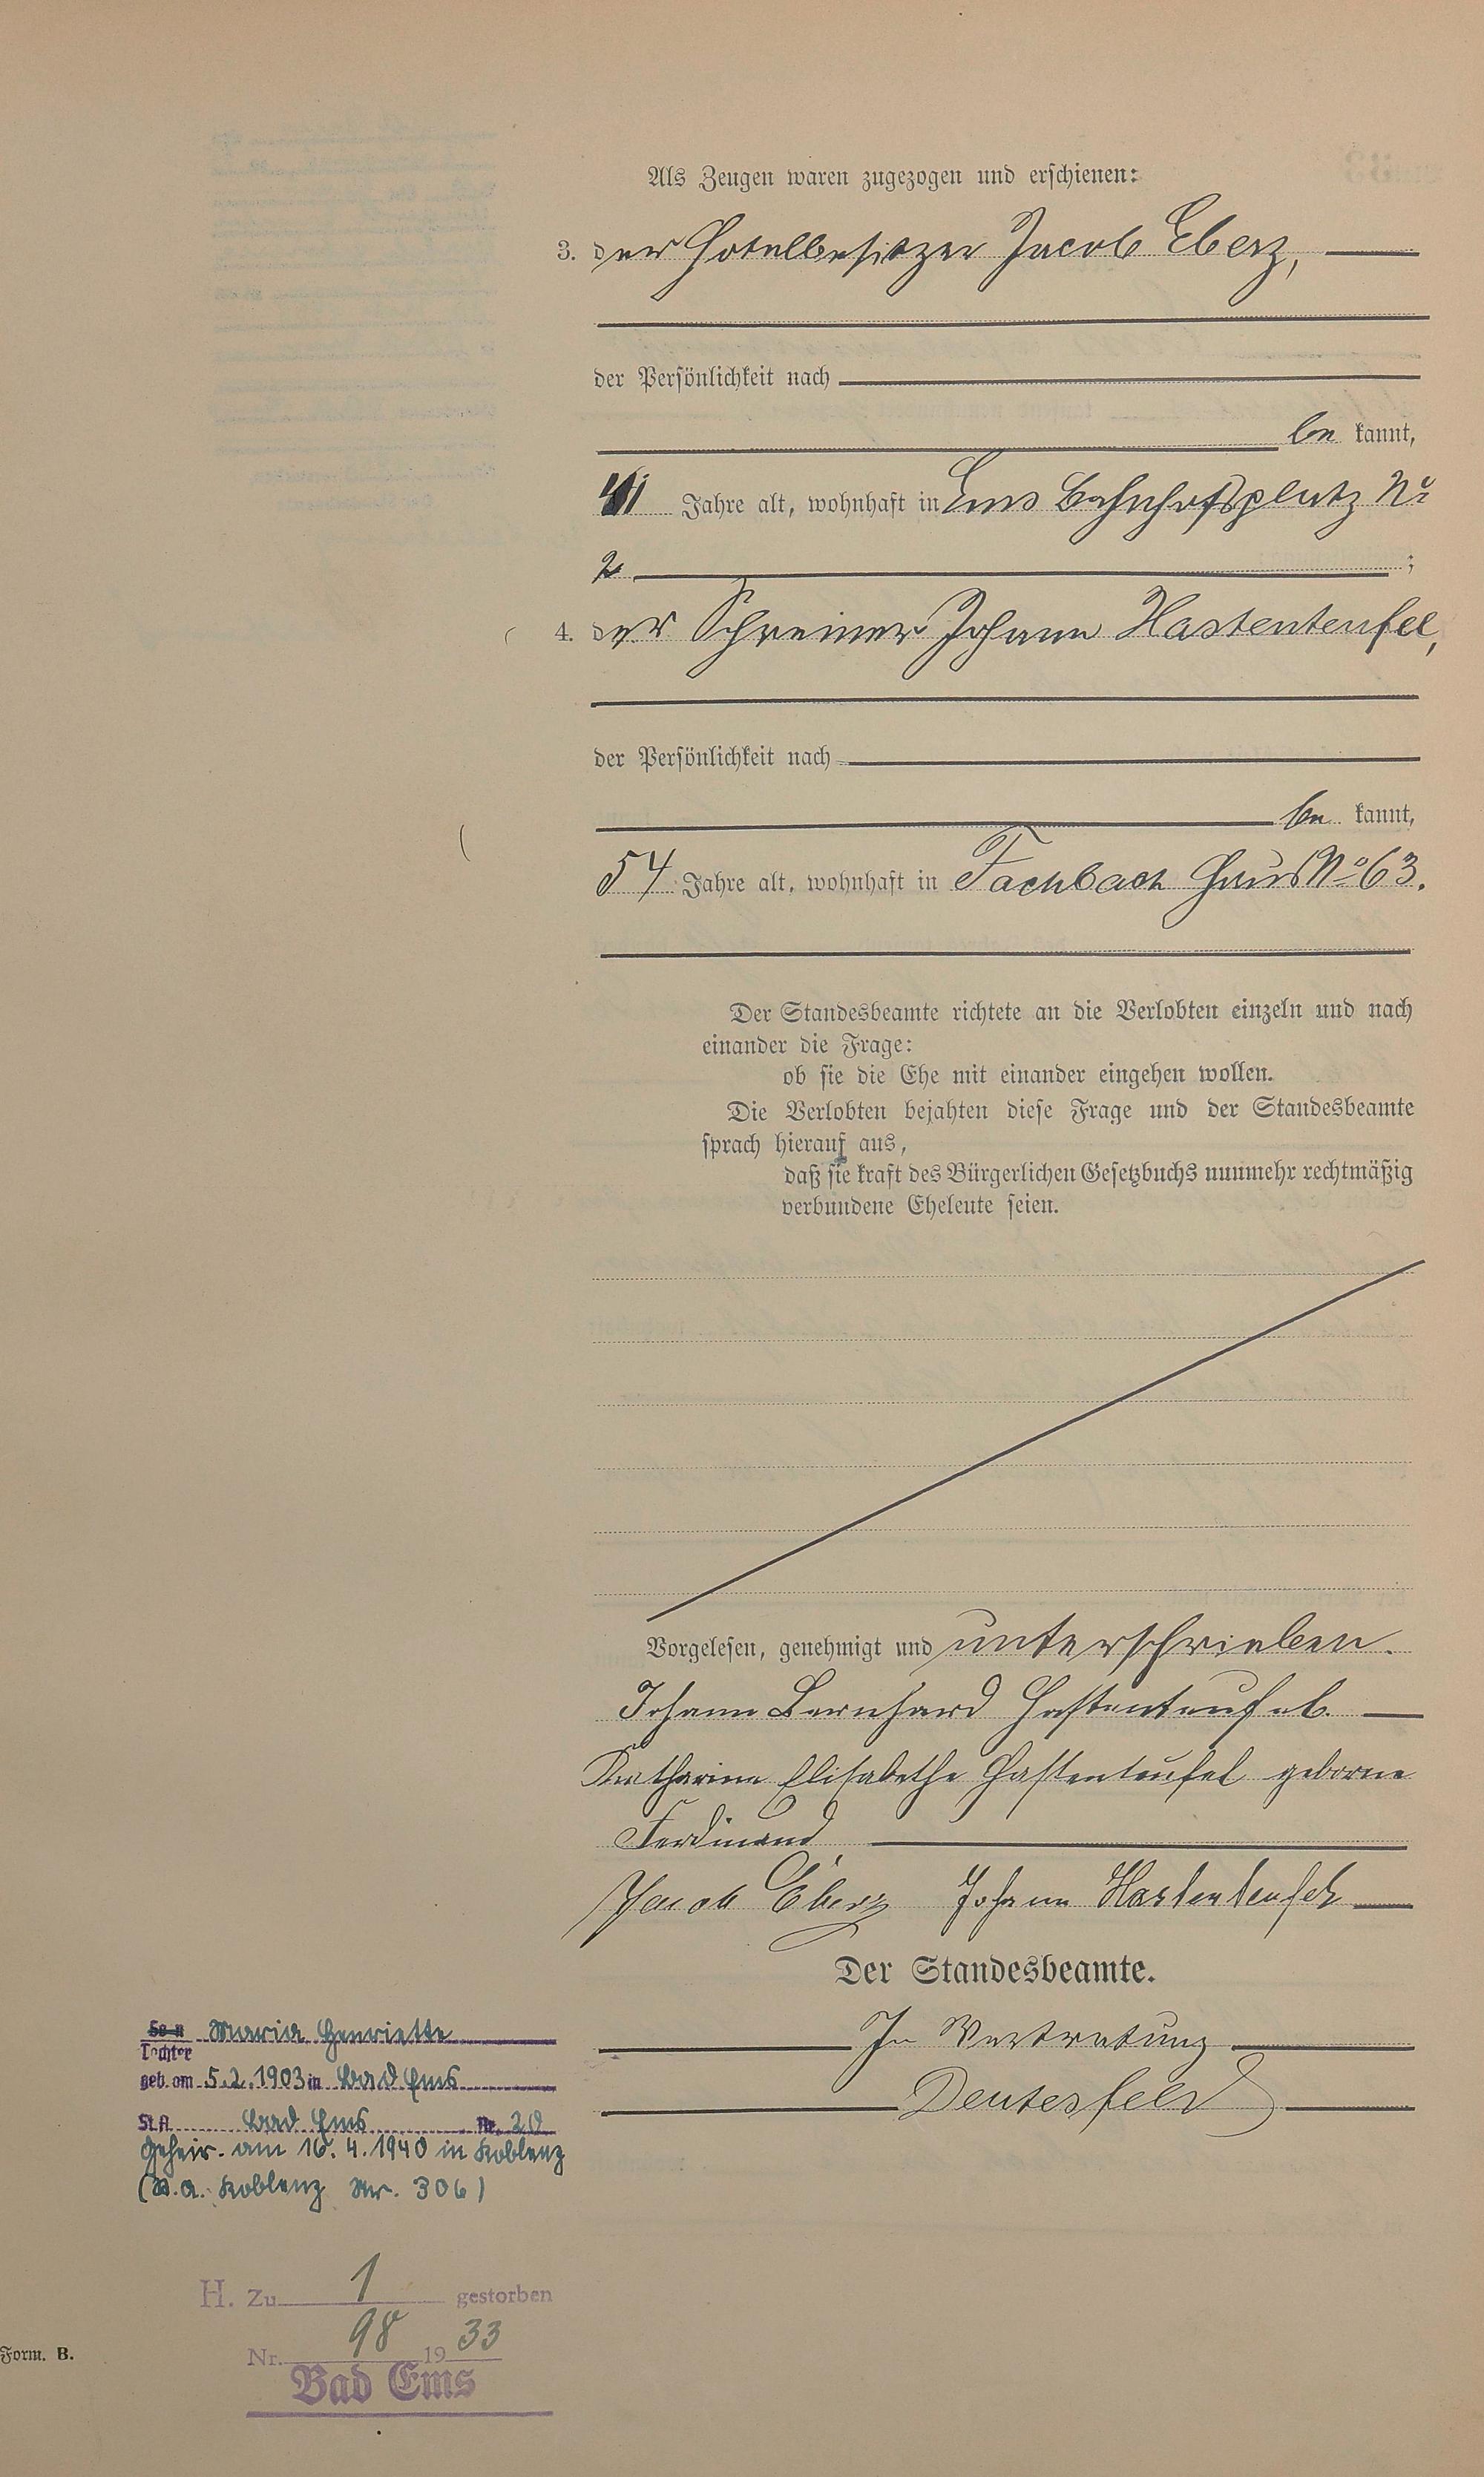 Als Zeugen waren zugezogen und erschienen:
3. der Hotelbesitzer Jacob Eberz,
der Persönlichkeit nach
be kannt,
41 Jahre alt, wohnhaft in Ems Bahnhofsplatz No
2 ;
4. der Schreiner Johann Hastenteufel,
der Persönlichkeit nach
be kannt,
54 Jahre alt, wohnhaft in Fachbach Haus No 63.
Der Standesbeamte richtete an die Verlobten einzeln und nach
einander die Frage:
ob sie die Ehe mit einander eingehen wollen.
Die Verlobten bejahten diese Frage und der Standesbeamte
sprach hierauf aus,
daß sie kraft des Bürgerlichen Gesetzbuchs nunmehr rechtmäßig
verbundene Eheleute seien.
Vorgelesen, genehmigt und unterschrieben.
Johann Bernhard Hastenteufel.
Katharina Elisabethe Hastenteufel geborne
Ferdinand
Jacob Eberz Johann Hastenteufel
Der Standesbeamte.
In Vertretung
Deutesfeld
Sohn Maria Henriette
Tochter
geb. am 5.2.1903 in Bad Ems
St.A. Bad Ems Nr. 20
Geheir. am 16.4.1940 in Koblenz
(St.A. Koblenz Nr. 306)
H. Zu 1 gestorben
Nr. 98 1933
Bad Ems
Form. B.